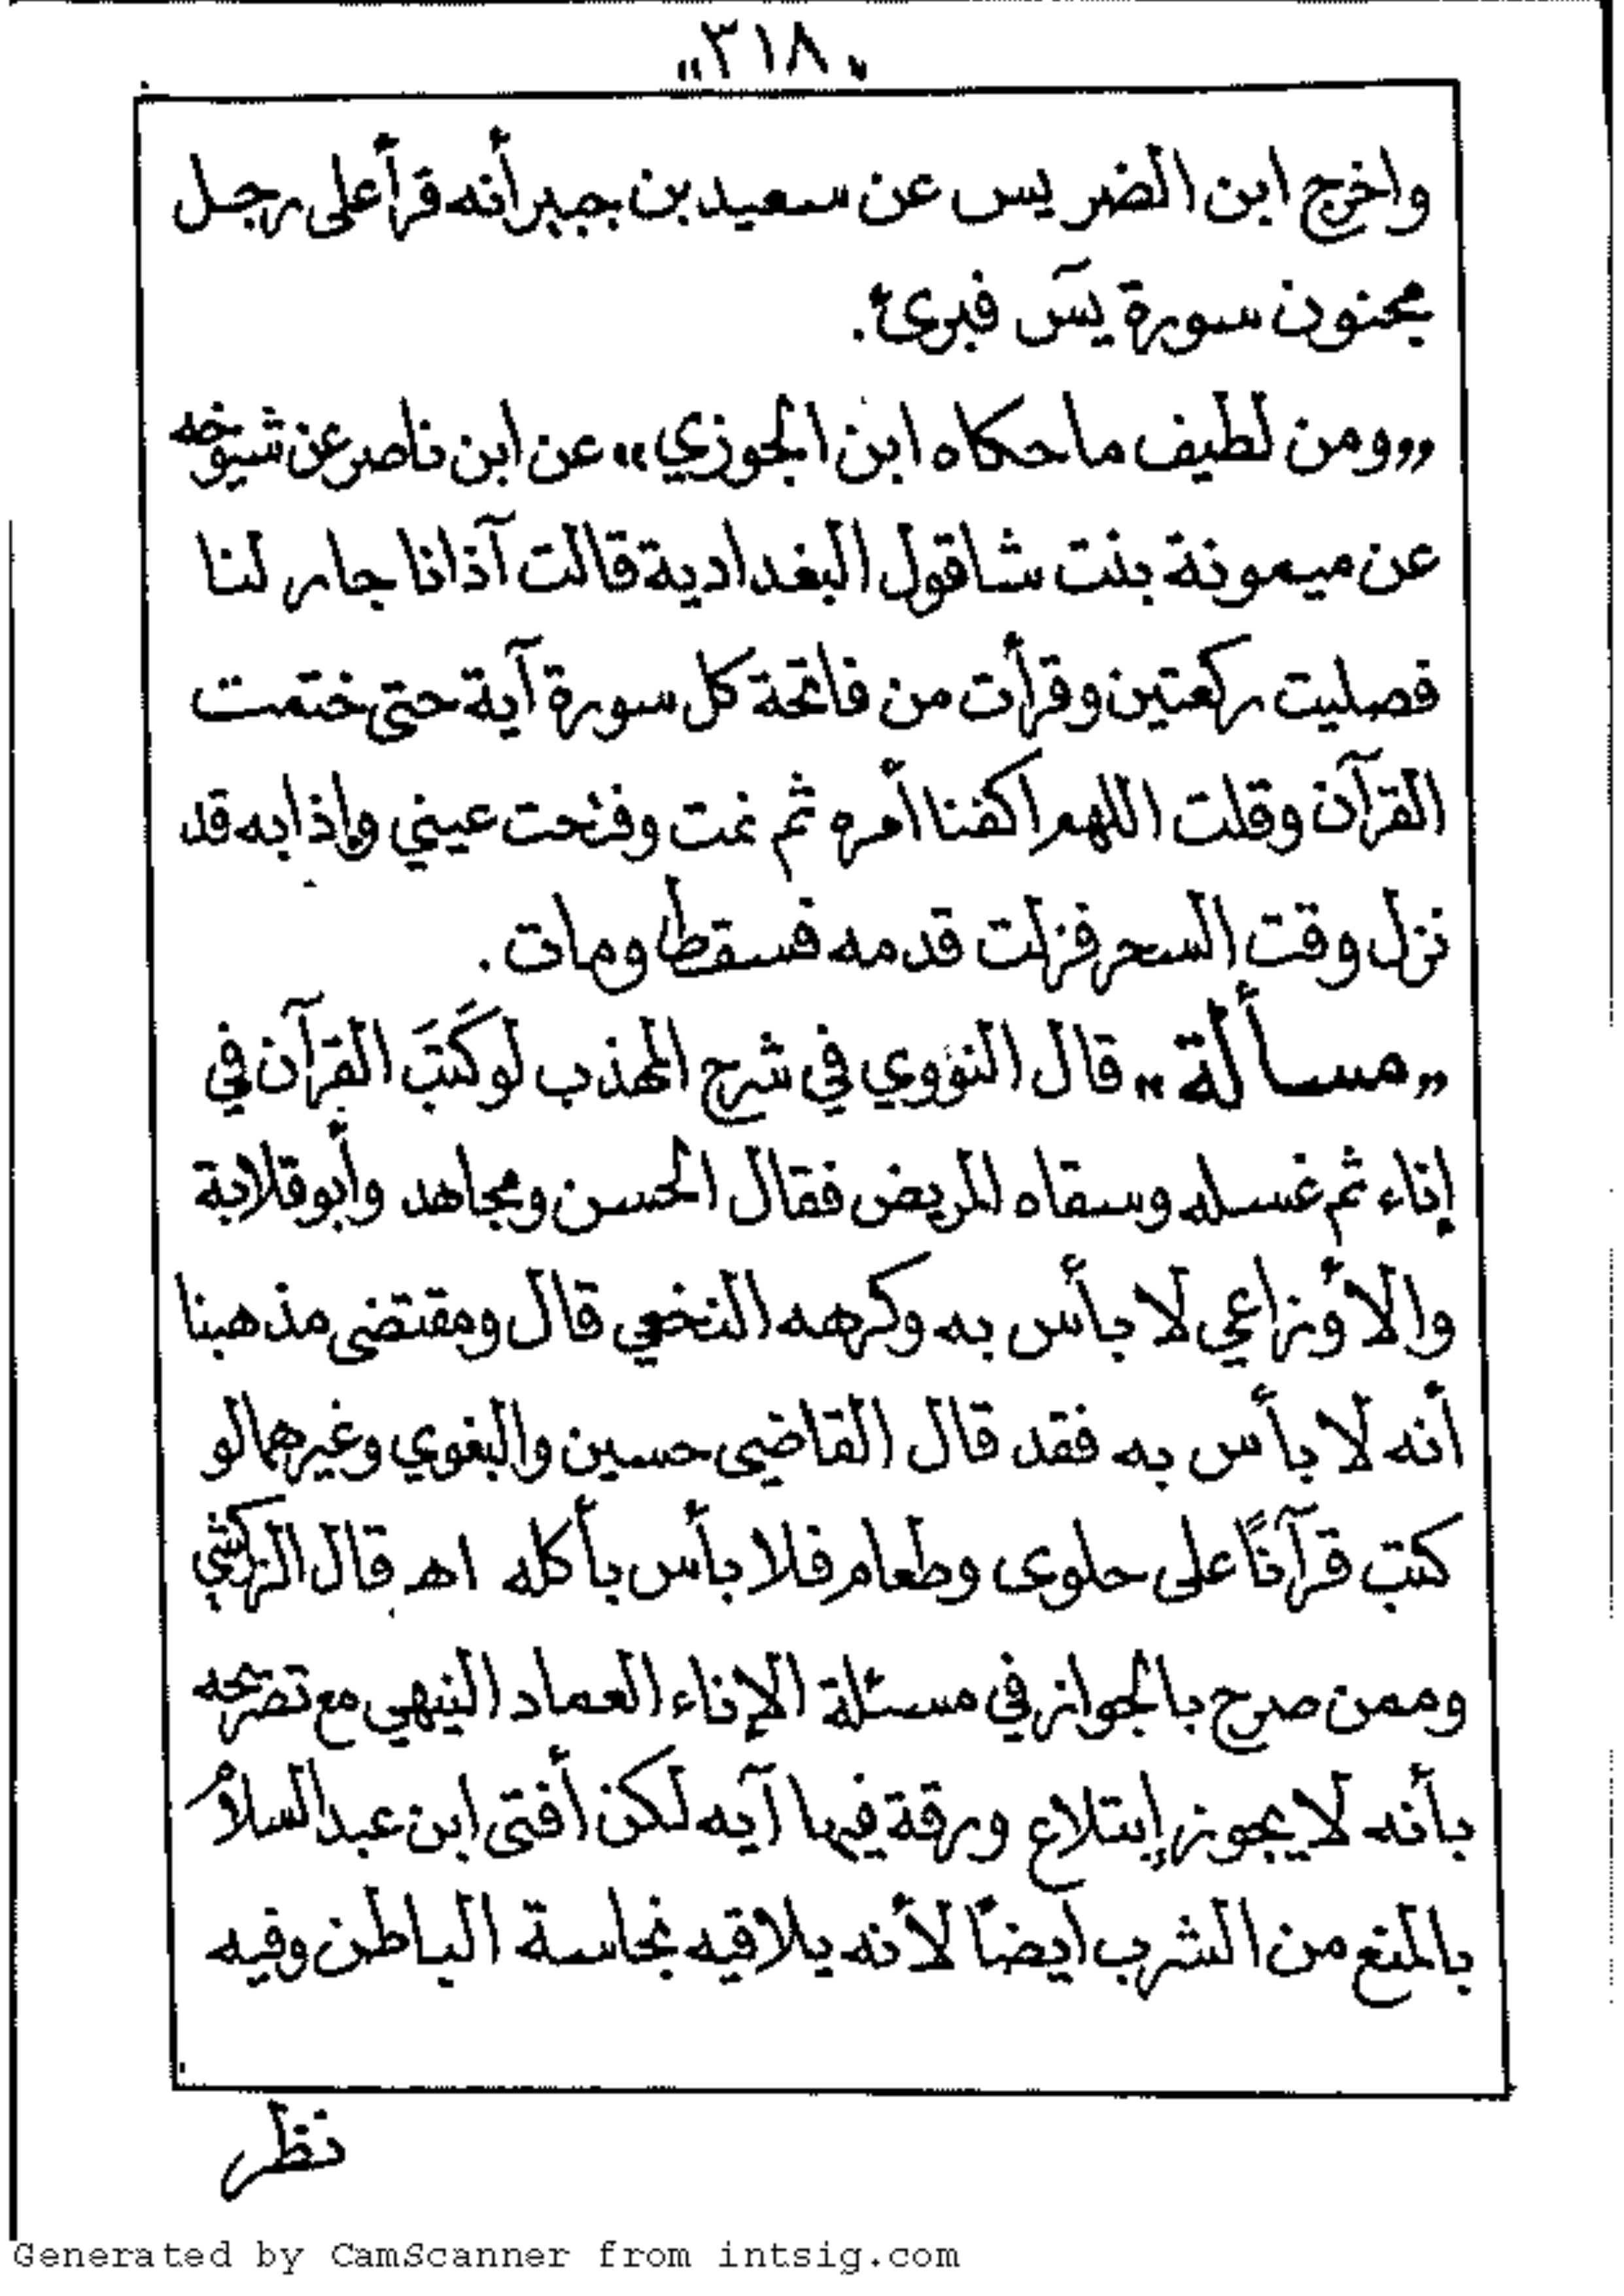 «٣١٨»
واخرج ابن الضريس عن سعيد بن جبير أنه قرأ على رجل
مجنون سورة يسٓ فبرئ.
«ومن لطيف ما حكاه ابن الجوزي» عن ابن ناصر عن شيوخه
عن ميمونة بنت شاقول البغدادية قالت آذانا جار لنا
فصليت ركعتين وقرأت من فاتحة كل سورة آية حتى ختمت
القرآن وقلت اللهم اكفنا أمره ثم نمت وفتحت عيني وإذا به قد
نزل وقت السحر فزلت قدمه فسقط ومات.
«مسألة» قال النؤوي في شرح المهذب لو كَتَبَ القرآن في
إناء ثم غسله وسقاه للمريض فقال الحسن ومجاهد وأبو قلابة
والأوزاعي لا بأس به وكرهه النخعي قال ومقتضى مذهبنا
أنه لا بأس به فقد قال القاضي حسين والبغوي وغيرهما لو
كتب قرآنًا على حلوى وطعام فلا بأس بأكله اهـ قال الزركشي
وممن صرح بالجواز في مسئلة الإناء العماد النيهي مع تصريحه
بأنه لا يجوز إبتلاع ورقة فيها آيه لكن أفتى ابن عبد السلام
بالمنع من الشرب أيضًا لأنه يلاقيه نجاسة الباطن وفيه
نظر
Generated by CamScanner from intsig.com